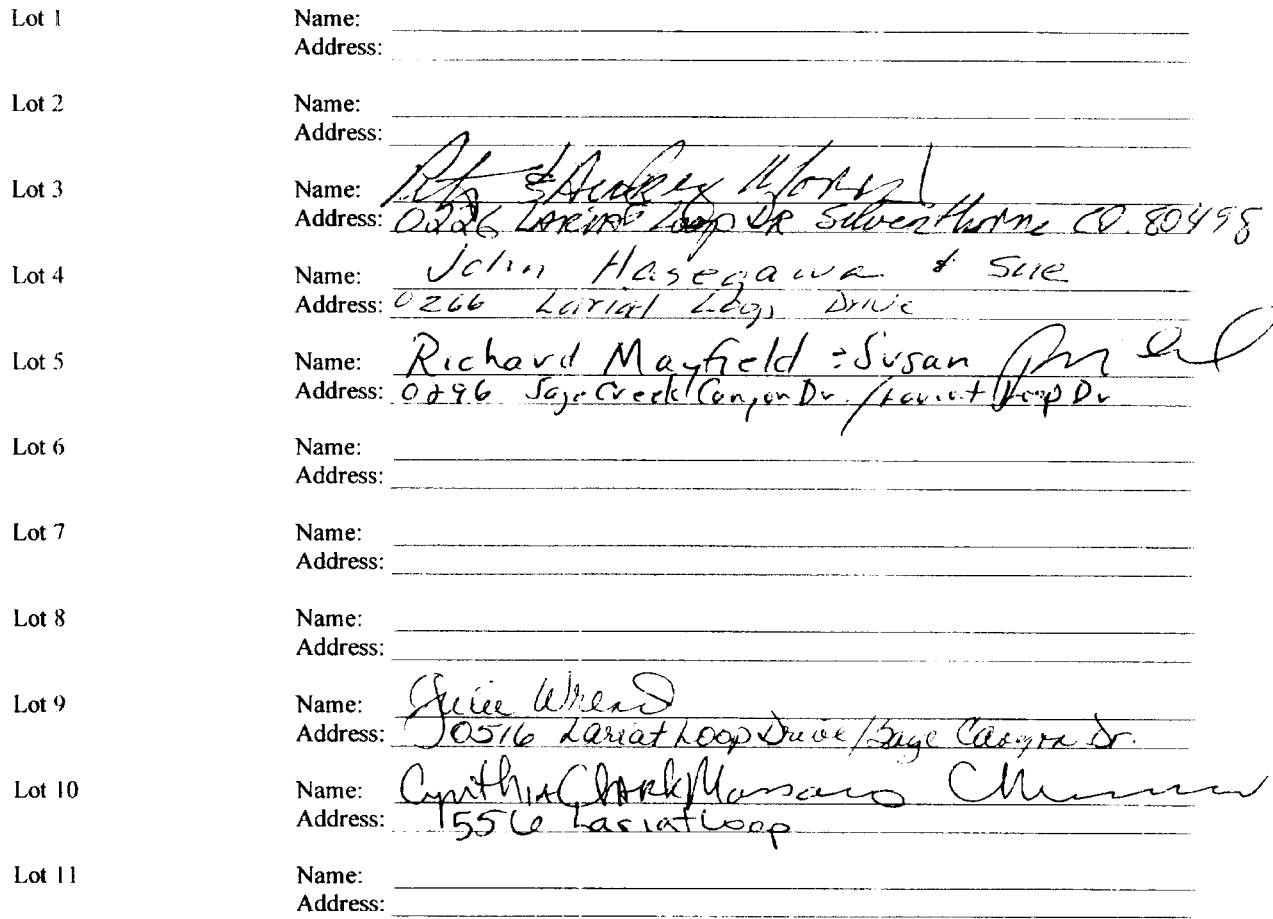 Lot 1 Name:
Address:
Lot 2 Name:
Address:
Lot 3 Name: & Audrey
Address: 0226 LARIAT Loop DR Silverthorne CO. 80498
Lot 4 Name: John Hasegawa & Sue
Address: 0266 Lariat Loop Drive
Lot 5 Name: Richard Mayfield & Susan
Address: 0296 Sage Creek Canyon Dr. / Lariat Loop Dr
Lot 6 Name:
Address:
Lot 7 Name:
Address:
Lot 8 Name:
Address:
Lot 9 Name: Julie
Address: 0516 Lariat Loop Drive/Sage Canyon Dr.
Lot 10 Name: Cynthia Clark Massaro
Address: 556 Lariat Loop
Lot 11 Name:
Address: